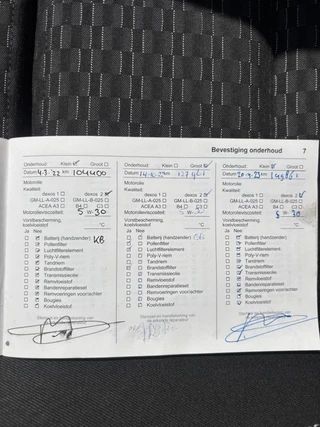 Bevestiging onderhoud 7
Onderhoud: Klein Groot
Datum 4-3-22 km 104400
Motorolie
Kwaliteit:
dexos 1 dexos 2
GM-LL-A-025 GM-LL-B-025
ACEA A3 B4 C3
Motorolieviscositeit: 5 W- 30
Vorstbescherming,
koelvloeistof °C
Ja Nee
Batterij (handzender) KB
Pollenfilter
Luchtfilterelement
Poly-V-riem
Tandriem
Brandstoffilter
Transmissieolie
Remvloeistof
Bandenreparatieset
Remvoeringen voor/achter
Bougies
Koelvloeistof
Onderhoud: Klein Groot
Datum km
Motorolie
Kwaliteit:
dexos 1 dexos 2
GM-LL-A-025 GM-LL-B-025
ACEA A3 B4 C3
Motorolieviscositeit:
Vorstbescherming,
koelvloeistof °C
Ja Nee
Batterij (handzender)
Pollenfilter
Luchtfilterelement
Poly-V-riem
Tandriem
Brandstoffilter
Transmissieolie
Remvloeistof
Bandenreparatieset
Remvoeringen voor/achter
Bougies
Koelvloeistof
Onderhoud: Klein Groot
Datum km
Motorolie
Kwaliteit:
dexos 1 dexos 2
GM-LL-A-025 GM-LL-B-025
ACEA A3 B4 C3
Motorolieviscositeit: 5 W- 30
Vorstbescherming,
koelvloeistof °C
Ja Nee
Batterij (handzender)
Pollenfilter
Luchtfilterelement
Poly-V-riem
Tandriem
Brandstoffilter
Transmissieolie
Remvloeistof
Bandenreparatieset
Remvoeringen voor/achter
Bougies
Koelvloeistof